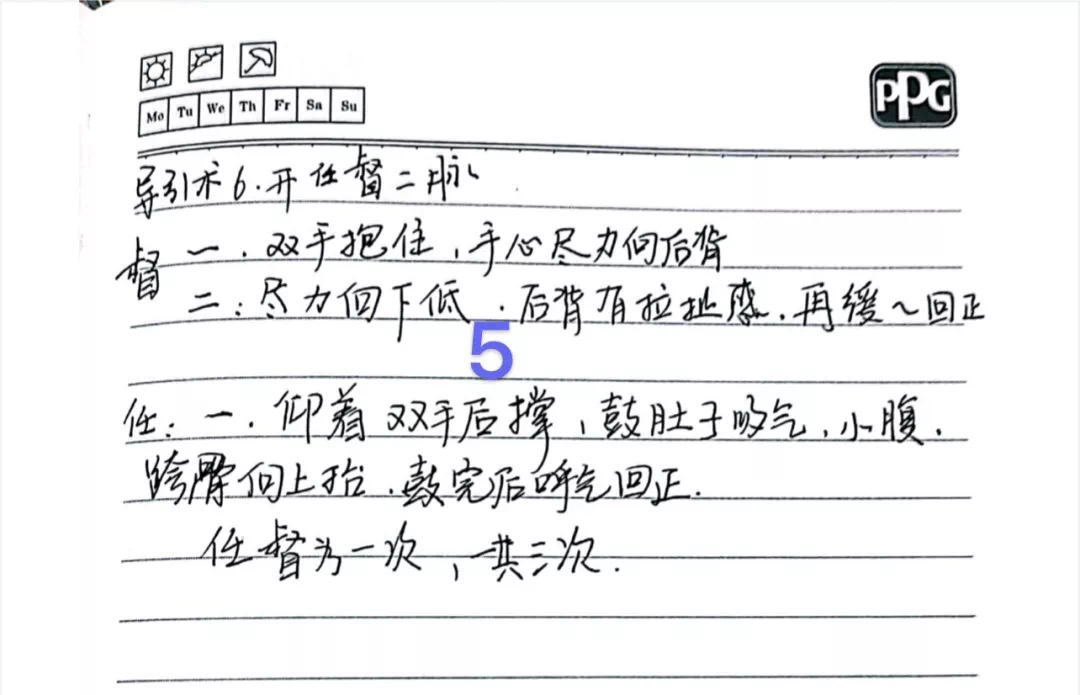 Mo Tu We Th Fr Sa Su
PPG
导引术6.开任督二脉
督 一.双手抱住,手心尽力向后背
二:尽力向下低.后背有拉扯感.再缓～回正
5
任:一.仰着双手后撑,鼓肚子吸气,小腹.
跨骨向上抬.鼓完后呼气回正.
任督为一次,一共三次.